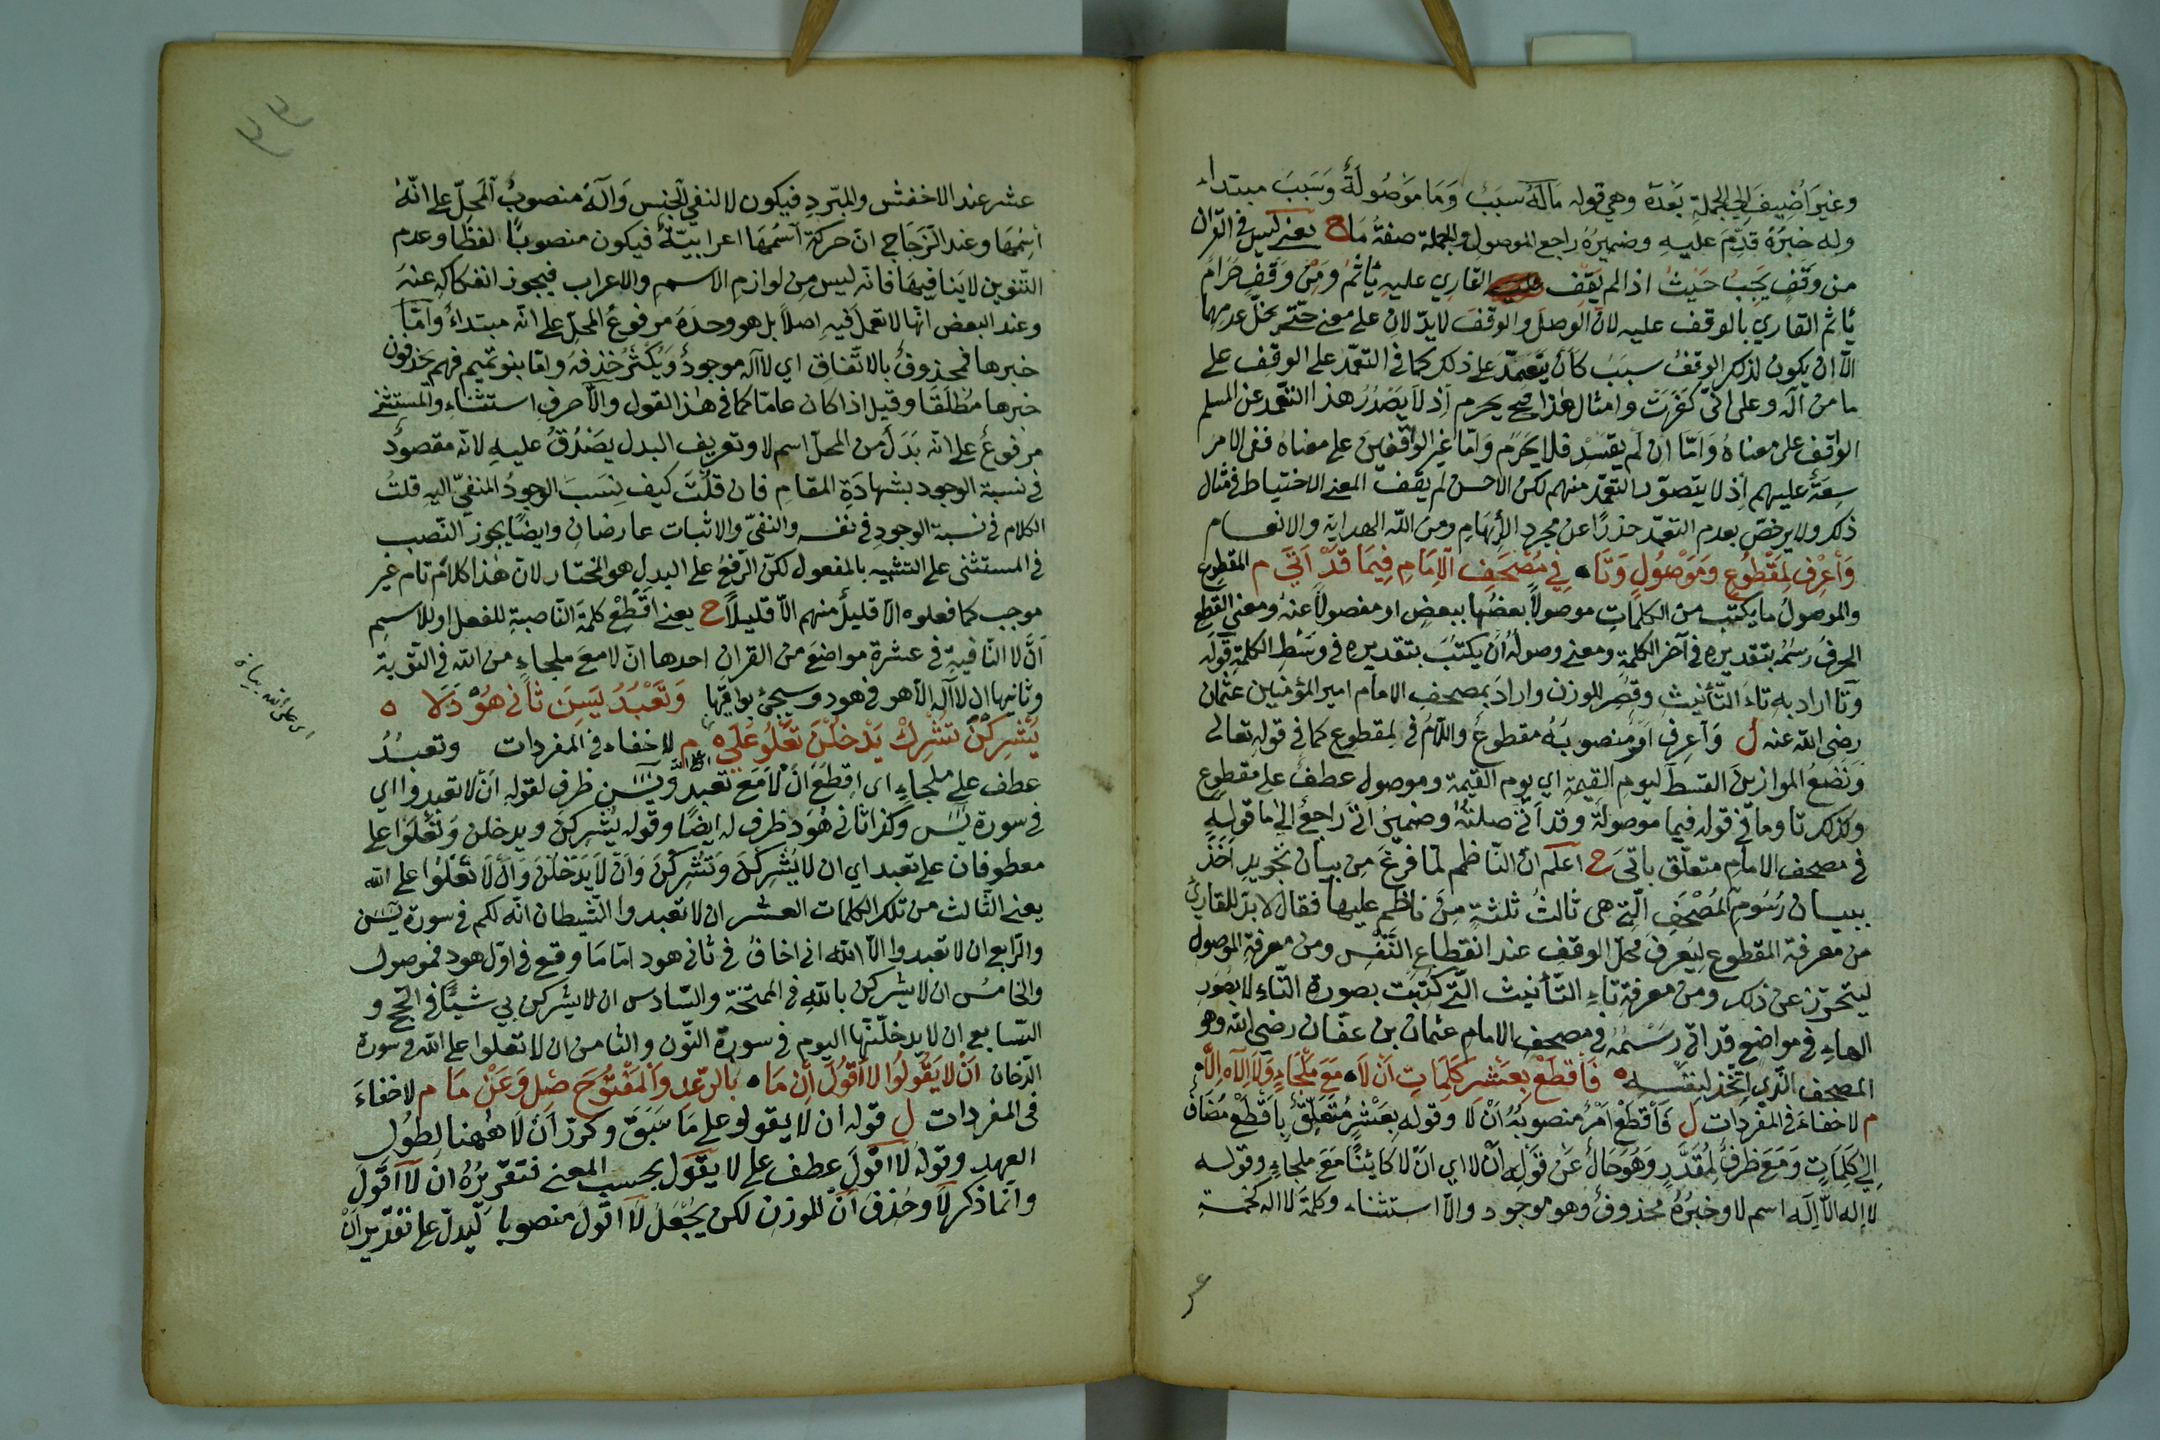 وغير أضيف إلى الجملة بعده وهي قوله ماله سبب وما موصولة وسبب مبتداء
وله خبره قدم عليه وضميره راجع الموصول والجملة صفة ما ح يعني ليس في القرآن
من وقف يجب حيث اذا لم يقف القاري عليه ياثم ومن وقف حرام
ياثم القاري بالوقف عليه لان الوصل والوقف لا يدلان على معنى حتى يخل عدمها
الا ان يكون لذلك الوقف سبب كأن يتعمد على ذلك كما في التعمد على الوقف على
ما من اله وعلى اني كفرت وامثال هذا فح يحرم اذ لا يصدر هذا التعمد عن المسلم
الواقف على معناه واما ان لم يقصد فلا يحرم واما غير الواقفين على معناه ففي الامر
سعة عليهم اذ لا يتصور التعمد منهم لكن الاحسن لم يقف المعنى الاحتياط في مثال
ذلك ولا يرخص بعدم التعمد حذرا عن مجرد الايهام ومن الله الهداية والانعام
وأعرف لمقطوع وموصول وتا في مصحف الامام فيما قد أتى م المقطوع
والموصول ما يكتب من الكلمات موصولا بعضها ببعض او مفصولا عنه ومعنى القطع
الحرف رسمه بتقديره في آخر الكلمة ومعنى وصوله أن يكتب بتقديره في وسط الكلمة قوله
وتا اراد به تاء التأنيث وقصر للوزن واراد بمصحف الامام امير المؤمنين عثمان
رضي الله عنه ل وأعرف امر منصوبه مقطوع واللام في لمقطوع كما في قوله تعالى
ونضع الموازين القسط ليوم القيمة اي يوم القيمة وموصول عطف على مقطوع
وكذلك تا وما في قوله فيما موصولة وقد أتى صلته وضمير اتى راجع الى ما قوله
في مصحف الامام متعلق باتى ح اعلم ان الناظم لما فرغ من بيان تجويد اخذ
ببيان رسوم المصحف التي هى ثالث ثلثة من ناظم عليها فقال لا بد للقاري
من معرفة المقطوع ليعرف محل الوقف عند انقطاع النفس ومن معرفة الموصول
ليتحرز عن ذلك ومن معرفة تاء التأنيث التي كتبت بصورة التاء لا بصور
الهاء في مواضع قد اتى رسمه في مصحف الامام عثمان بن عفان رضى الله وهو
المصحف الذي اتخذ لنفسه فأقطع بعشر كلمات أن لا مع ملجاء ولا اله الا
م لا خفاء في المفردات ل فأقطع أمر منصوبه أن لا وقوله بعشر متعلق باقطع مضاف
إلى كلمات ومع ظرف لمقدر وهو حال عن قوله أن لا اي ان لا كائنا مع ملجاء وقوله
لا إله الا إله اسم لا وخبره محذوف وهو موجود والا استثناء وكلمة لا اله خمسة
عشر
عشر عند الاخفش والمبرد فيكون لا لنفي الجنس وآله منصوب المحل على انه
اسمها وعند الزجاج ان حركة اسمها اعرابية فيكون منصوبا لفظا وعدم
التنوين لا ينافيها فانه ليس من لوازم الاسم والاعراب فيجوز انفكاكه عنه
وعند البعض انها لا تعمل فيه اصلا بل هو وحده مرفوع المحل على انه مبتداء وأما
خبرها فمحذوف بالاتفاق اي لا اله موجود ويكثر حذفه واما بنو تميم فهم يحذفون
خبرها مطلقا وقيل اذا كان عاما كما في هذا القول والا حرف استثناء والمستثنى
مرفوع على انه بدل من المحل اسم لا وتعريف البدل يصدق عليه لانه مقصود
في نسبة الوجود بشهادة المقام فان قلت كيف نسب الوجود المنفي اليه قلت
الكلام في نسبة الوجود في نفسه والنفي والاثبات عارضان وايضا يجوز النصب
في المستثنى على التشبيه بالمفعول لكن الرفع على البدل هو المختار لان هذا كلام تام غير
موجب كما فعلوه الا قليل منهم الا قليلا ح يعني اقطع كلمة الناصبة للفعل او للاسم
أن لا النافية في عشرة مواضع من القران احدها ان لا مع ملجاء من الله في التوبة
وثانيها ان لا اله الا هو في هود وسيجئ بواقيها وتعبد يسن ثاني هود لا ه
يشركن تشرك يدخلن تعلو على م لا خفاء في المفردات وتعبد
عطف على ملجاء اى اقطع أن لا مع تعبد ويسن ظرف لقوله أن لا تعبدوا اي
في سورة يس وكذا ثاني هود ظرف له ايضا وقوله يشركن ويدخلن وتعلوا على
معطوفان على تعبد اي ان لا يشركن وتشركن وأن لا يدخلن وأن لا تعلوا على الله
يعني الثالث من تلك الكلمات العشر ان لا تعبدوا الشيطان انه لكم في سورة يسن
والرابع ان لا تعبدوا الا الله انى اخاف في ثاني هود اما ما وقع في اول هود فموصول
والخامس ان لا يشركن بالله في الممتحنة والسادس ان لا يشركن بي شيئا في الحج و
السابع ان لا يدخلنها اليوم في سورة النون والثامن ان لا تعلوا على الله في سورة
الدخان أن لا يقولوا لا أقول إن ما بالرعد والمفتوح صل وعن ما م لا خفاء
في المفردات ل قوله ان لا يقولو على ما سبق وكرر أن لا ههنا لطول
العهد وقوله لا اقول عطف على لا يقول بحسب المعنى فتقريره ان لا اقول
وانما ذكر لا وحذف أن للوزن لكن يجعل لا اقول منصوبا ليدل على تقدير أن